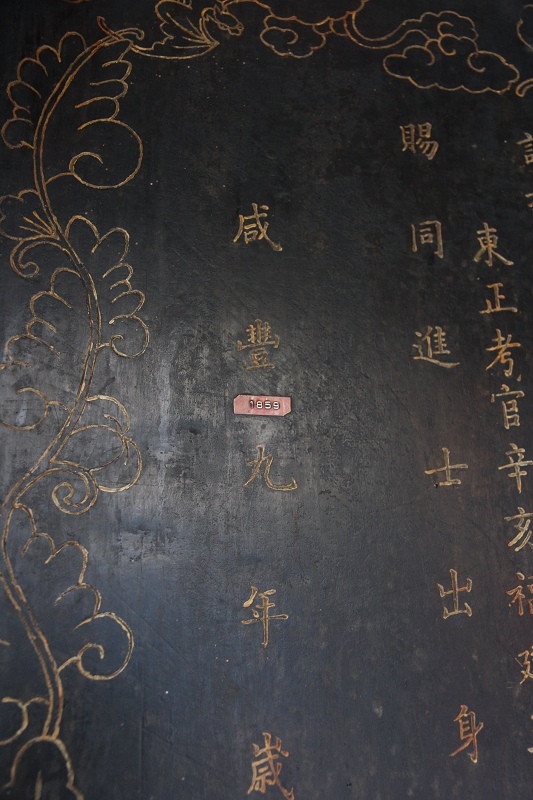 東正考官辛亥福建
賜同進士出身
咸豐九年歲
1859